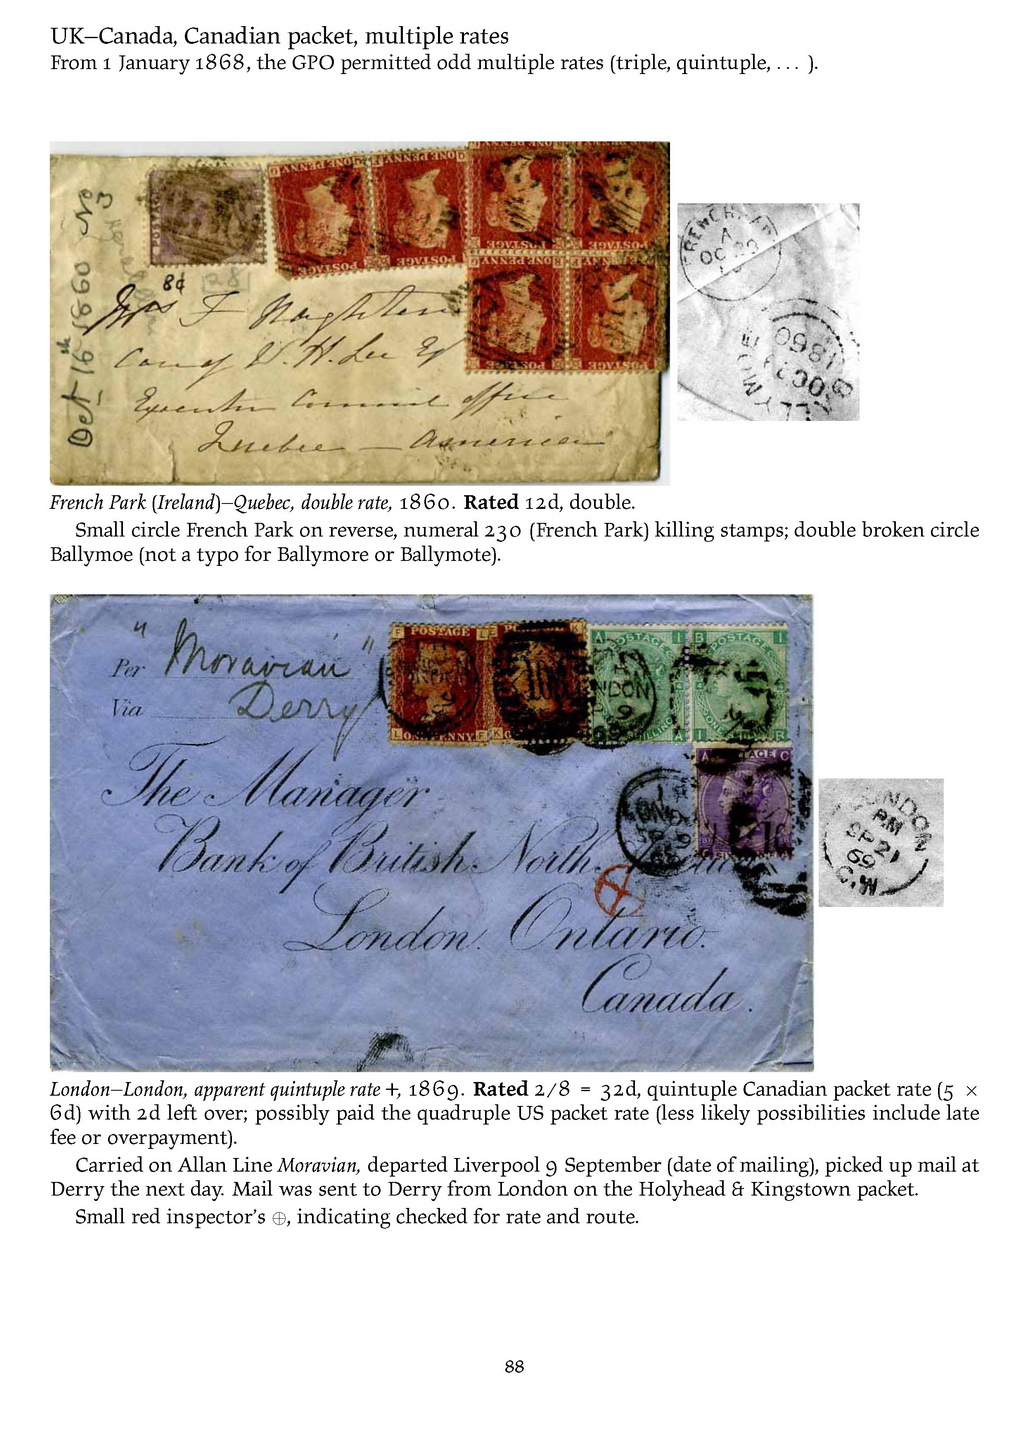 UK–Canada, Canadian packet, multiple rates
From 1 January 1868, the GPO permitted odd multiple rates (triple, quintuple, ... ).
Oct 16th 1860 No 3
8¢
28
Mrs F Naghten
Care of W. H. Lee Esq
Executive Council Office
Quebec — America
A
OC
1860
French Park (Ireland)–Quebec, double rate, 1860. Rated 12d, double.
Small circle French Park on reverse, numeral 230 (French Park) killing stamps; double broken circle
Ballymoe (not a typo for Ballymore or Ballymote).
Per "Moravian"
Via Derry
POSTAGE
ONE PENNY
The Manager
Bank of British North
London. Ontario.
Canada.
LONDON
PM
SP 21
69
C.W
London–London, apparent quintuple rate +, 1869. Rated 2/8 = 32d, quintuple Canadian packet rate (5 ×
6d) with 2d left over; possibly paid the quadruple US packet rate (less likely possibilities include late
fee or overpayment).
Carried on Allan Line Moravian, departed Liverpool 9 September (date of mailing), picked up mail at
Derry the next day. Mail was sent to Derry from London on the Holyhead & Kingstown packet.
Small red inspector's ⊕, indicating checked for rate and route.
88